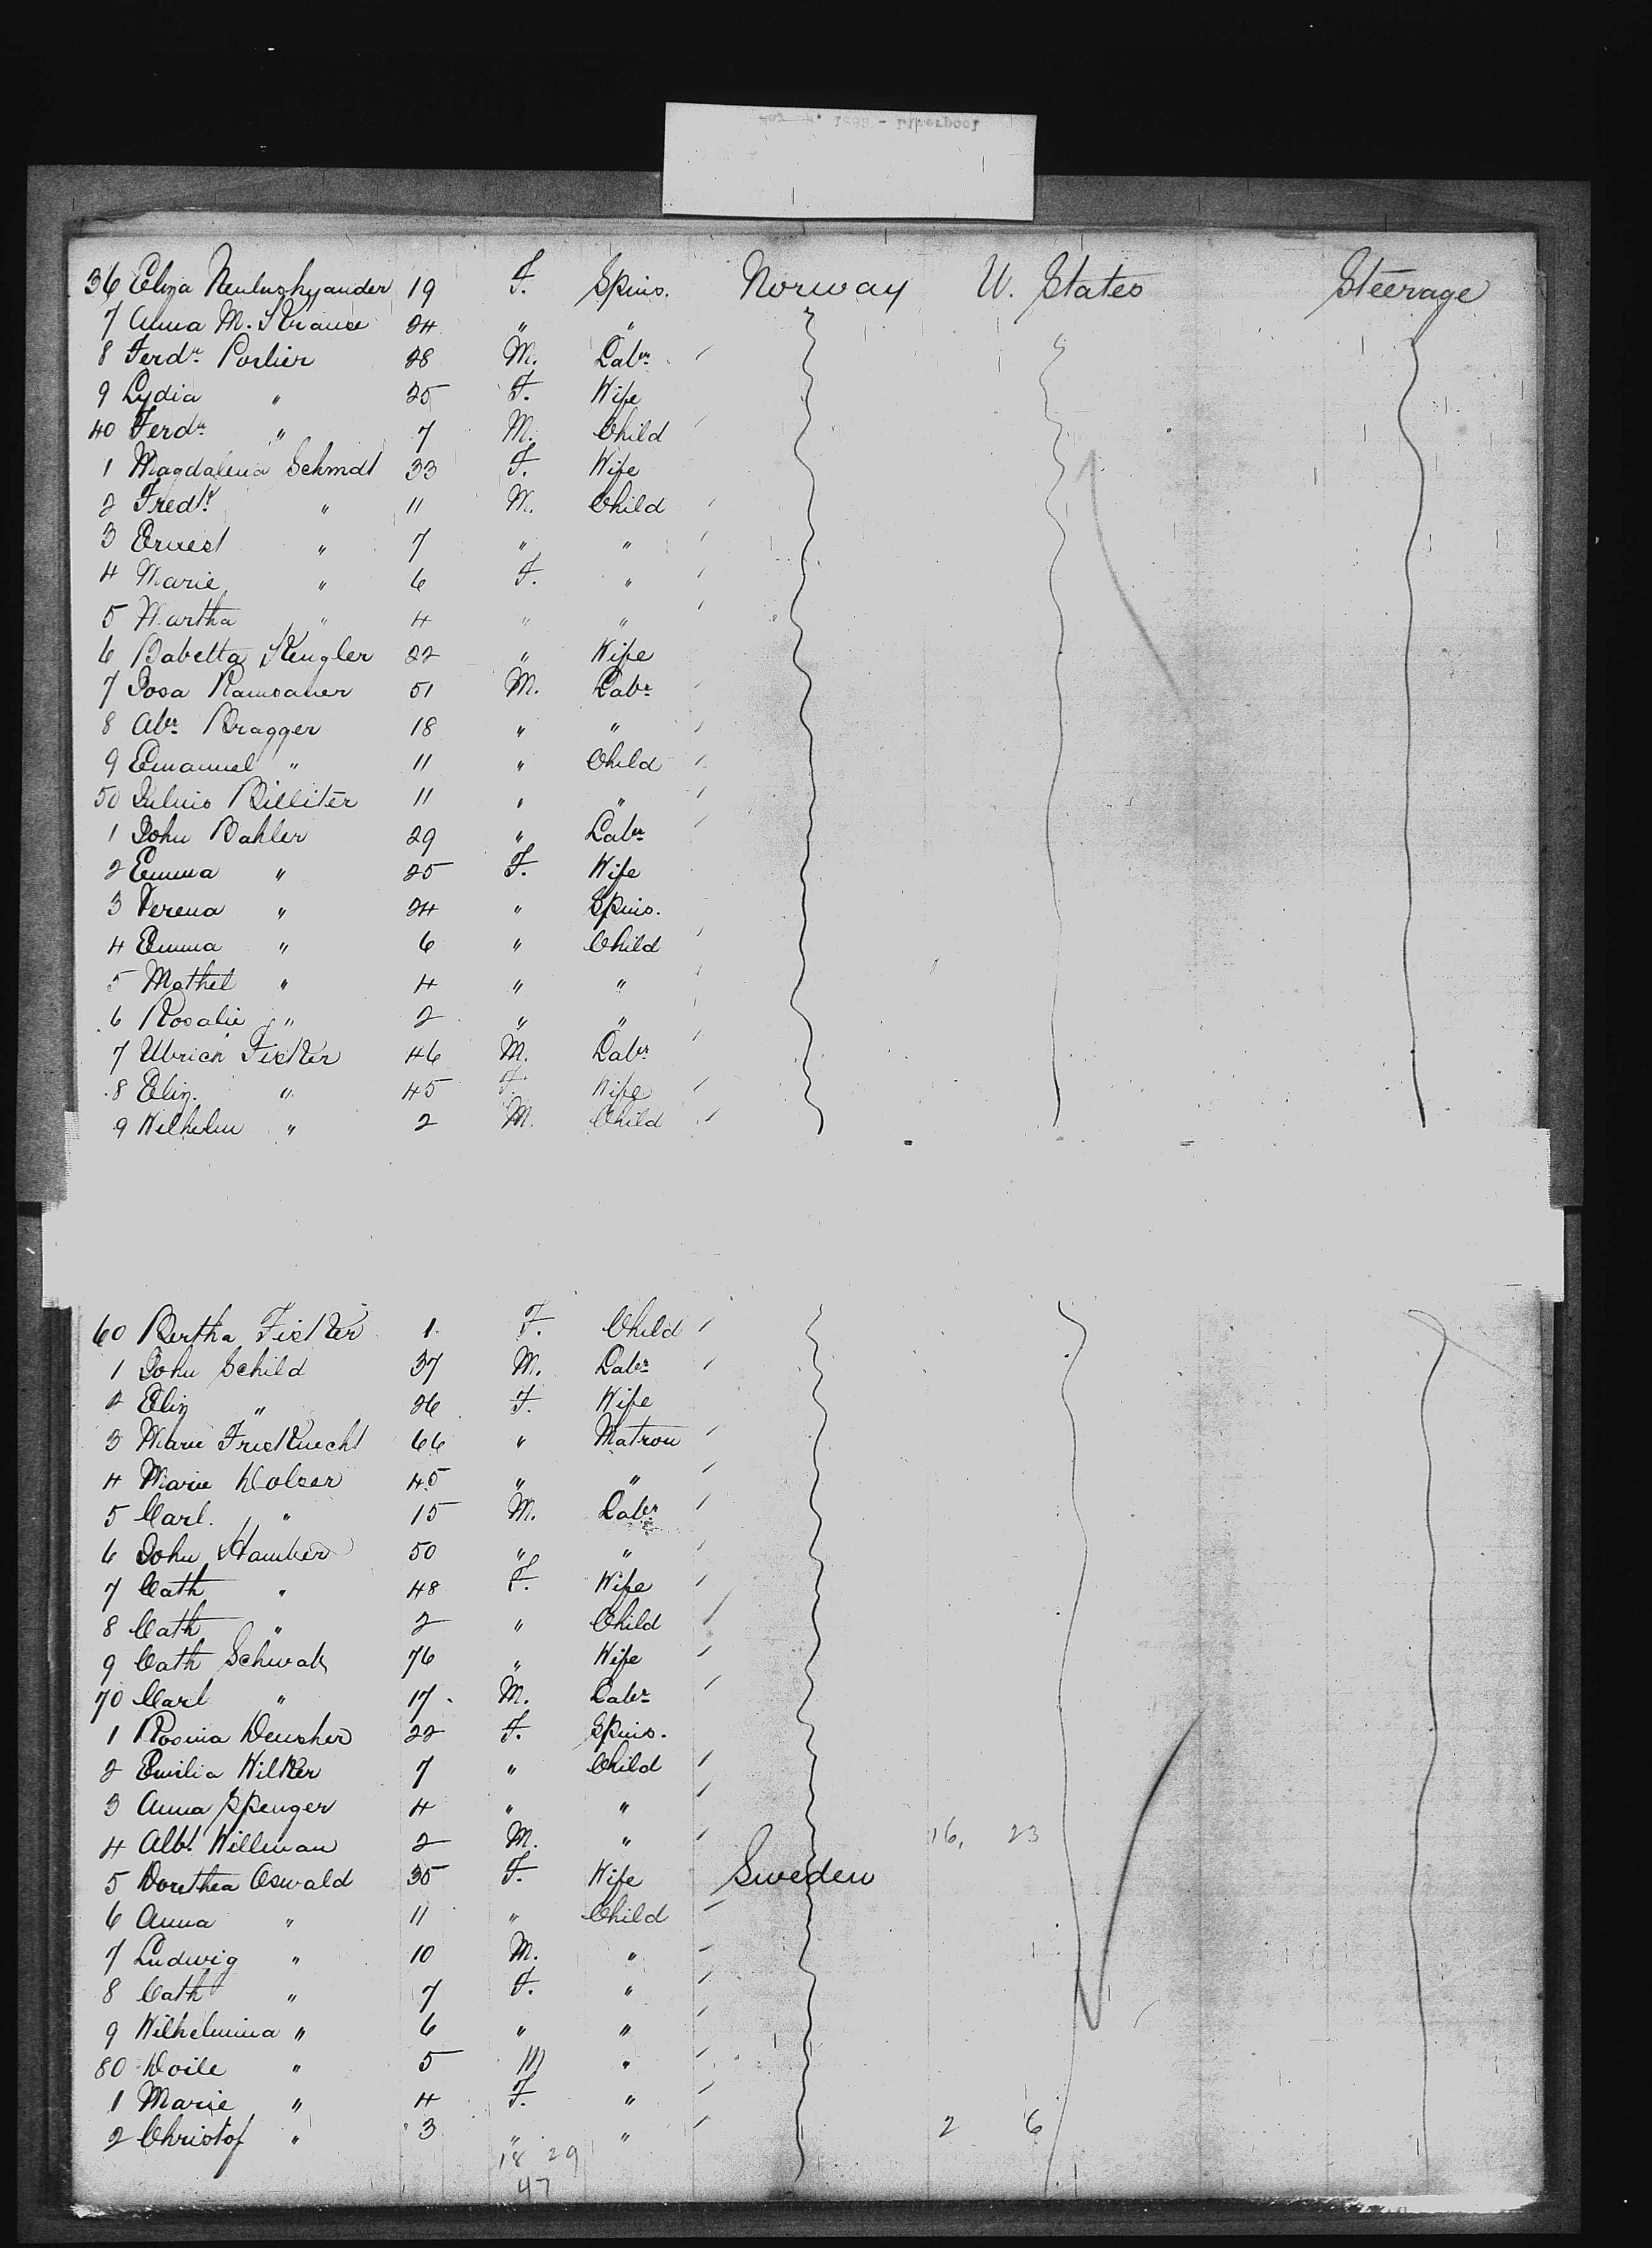 36 Eliza 19 F. Spins. Norway U. States Steerage
7 Anna M. Krause 24 " "
8 Ferdn. Porlier 28 M. Labr.
9 Lydia " 25 F. Wife
40 Ferdn. " 7 M. Child
1 Magdalena Schmdt 33 F. Wife
2 Fredk. " 11 M. Child
3 Ernest " 7 " "
4 Marie " 6 F. "
5 Martha " 4 " "
6 Babetta Kengler 22 " Wife
7 Josa Ramsauer 51 M. Labr.
8 Abr. Bragger 18 " "
9 Emanuel " 11 " Child
50 Julius Billiter 11 " "
1 John Bahler 29 " Labr.
2 Emma " 25 F. Wife
3 Verena " 24 " Spins.
4 Emma " 6 " Child
5 Mathel " 4 " "
6 Rosalie " 2 " "
7 Ulrich Fickter 46 M. Labr.
8 Eliz. " 45 F. Wife
9 Wilhelm " 2 M. Child
60 Bertha Fickter 1 F. Child
1 John Schild 37 M. Labr.
2 Eliz " 26 F. Wife
3 Marie Fricknecht 66 " Matron
4 Marie Dolser 45 " "
5 Carl. " 15 M. Labr.
6 John Hamber 50 " "
7 Cath " 48 F. Wife
8 Cath " 2 " Child
9 Cath Schwab 76 " Wife
70 Carl " 17 M. Labr.
1 Rosina Deusher 22 F. Spins.
2 Emilia Wilker 7 " Child
3 Anna Spenger 4 " "
4 Albt. Willman 2 M. " 16, 23
5 Dorethea Oswald 35 F. Wife Sweden
6 Anna " 11 " Child
7 Ludwig " 10 M. "
8 Cath " 7 F. "
9 Wilhelmina " 6 " "
80 Doile " 5 M "
1 Marie " 4 F. "
2 Christof " 3 " " 2 6
18 29
47